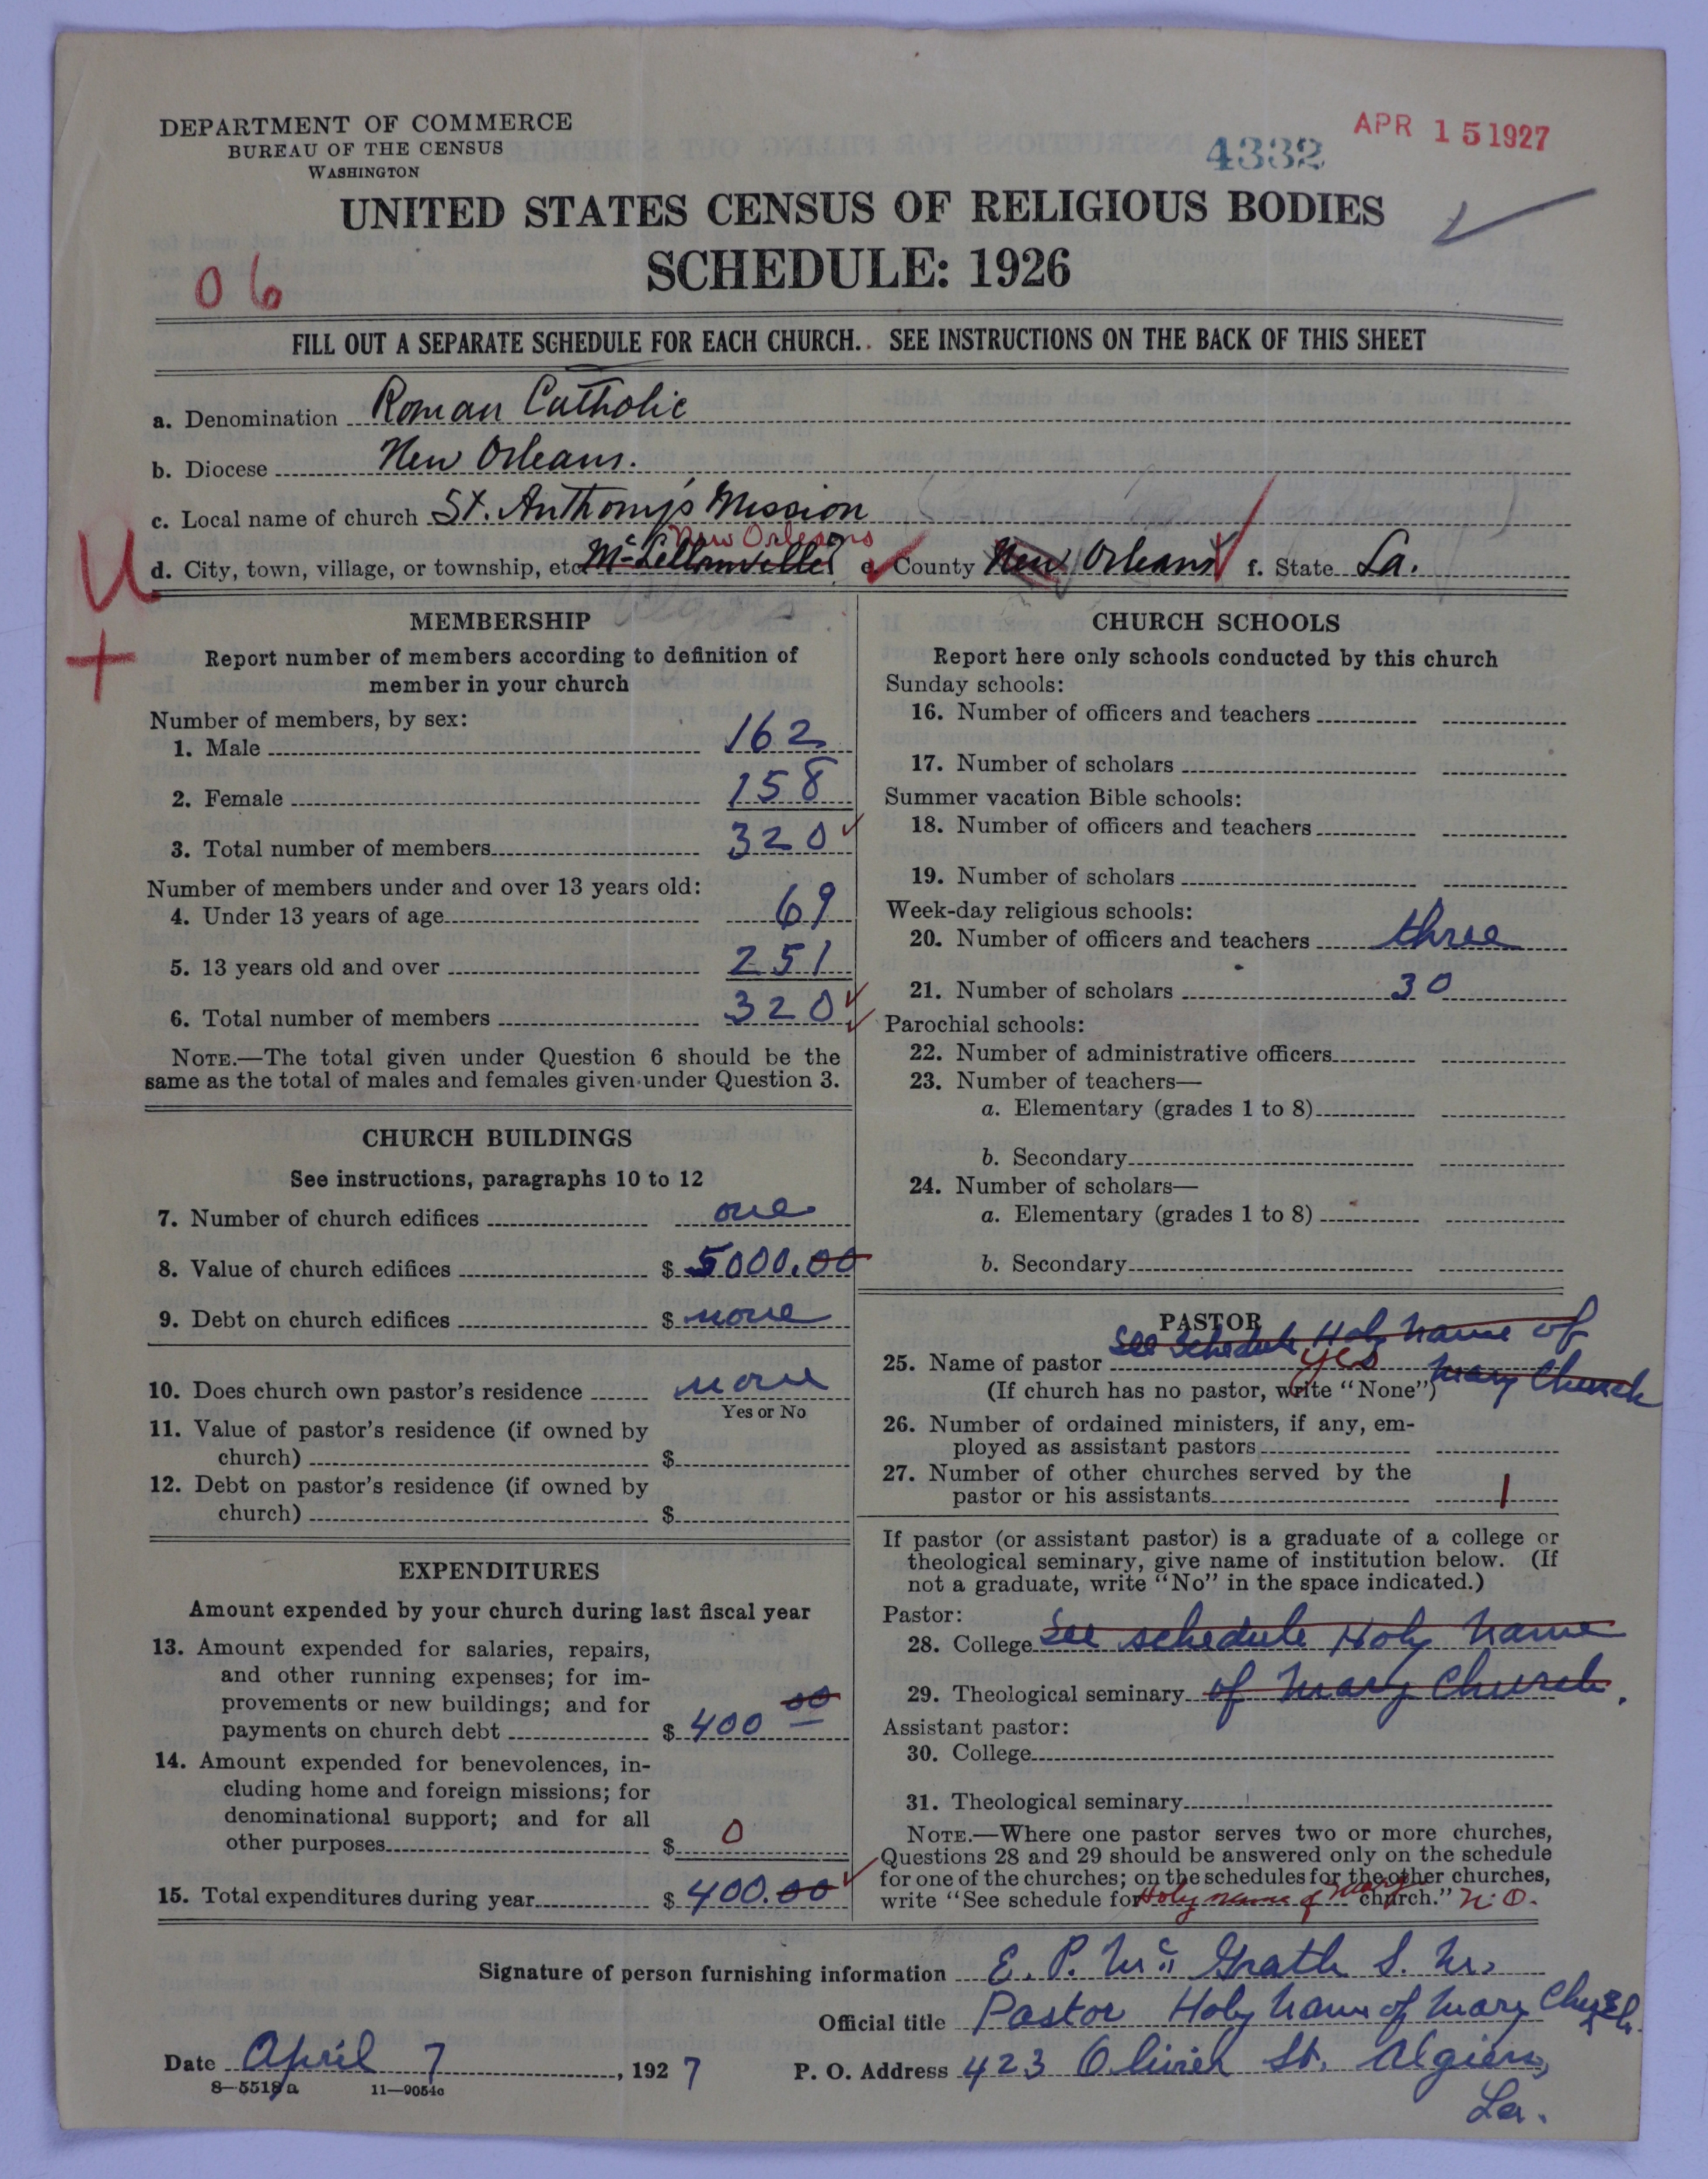 DEPARTMENT OF COMMERCE
BUREAU OF THE CENSUS
WASHINGTON
4332
APR 15 1927
UNITED STATES CENSUS OF RELIGIOUS BODIES
SCHEDULE: 1926
06
FILL OUT A SEPARATE SCHEDULE FOR EACH CHURCH. SEE INSTRUCTIONS ON THE BACK OF THIS SHEET
a. Denomination Roman Catholic
b. Diocese New Orleans.
c. Local name of church St. Anthony's Mission
New Orleans
d. City, town, village, or township, etc. McLellanville e. County New Orleans f. State La.
U
+
Algiers
MEMBERSHIP
Report number of members according to definition of
member in your church
Number of members, by sex:
1. Male 162
2. Female 158
3. Total number of members 320
Number of members under and over 13 years old:
4. Under 13 years of age 69
5. 13 years old and over 251
6. Total number of members 320
NOTE.—The total given under Question 6 should be the
same as the total of males and females given under Question 3.
CHURCH BUILDINGS
See instructions, paragraphs 10 to 12
7. Number of church edifices one
8. Value of church edifices $ 5000.00
9. Debt on church edifices $ none
10. Does church own pastor's residence none
Yes or No
11. Value of pastor's residence (if owned by
church) $
12. Debt on pastor's residence (if owned by
church) $
EXPENDITURES
Amount expended by your church during last fiscal year
13. Amount expended for salaries, repairs,
and other running expenses; for im-
provements or new buildings; and for
payments on church debt $ 400 00
14. Amount expended for benevolences, in-
cluding home and foreign missions; for
denominational support; and for all
other purposes $ 0
15. Total expenditures during year $ 400.00
CHURCH SCHOOLS
Report here only schools conducted by this church
Sunday schools:
16. Number of officers and teachers
17. Number of scholars
Summer vacation Bible schools:
18. Number of officers and teachers
19. Number of scholars
Week-day religious schools:
20. Number of officers and teachers three
21. Number of scholars 30
Parochial schools:
22. Number of administrative officers
23. Number of teachers—
a. Elementary (grades 1 to 8)
b. Secondary
24. Number of scholars—
a. Elementary (grades 1 to 8)
b. Secondary
PASTOR
See Schedule Holy Name of
25. Name of pastor yes Mary Church
(If church has no pastor, write "None")
26. Number of ordained ministers, if any, em-
ployed as assistant pastors
27. Number of other churches served by the
pastor or his assistants 1
If pastor (or assistant pastor) is a graduate of a college or
theological seminary, give name of institution below. (If
not a graduate, write "No" in the space indicated.)
Pastor:
28. College See schedule Holy Name
29. Theological seminary of Mary Church.
Assistant pastor:
30. College
31. Theological seminary
NOTE.—Where one pastor serves two or more churches,
Questions 28 and 29 should be answered only on the schedule
for one of the churches; on the schedules for the other churches,
write "See schedule for Holy name of Mary church." N.O.
Signature of person furnishing information E. P. McGrath S. M.
Official title Pastor Holy Name of Mary Church.
Date April 7, 1927 P. O. Address 423 Olivier St. Algiers,
La.
8—5518a 11—9054a